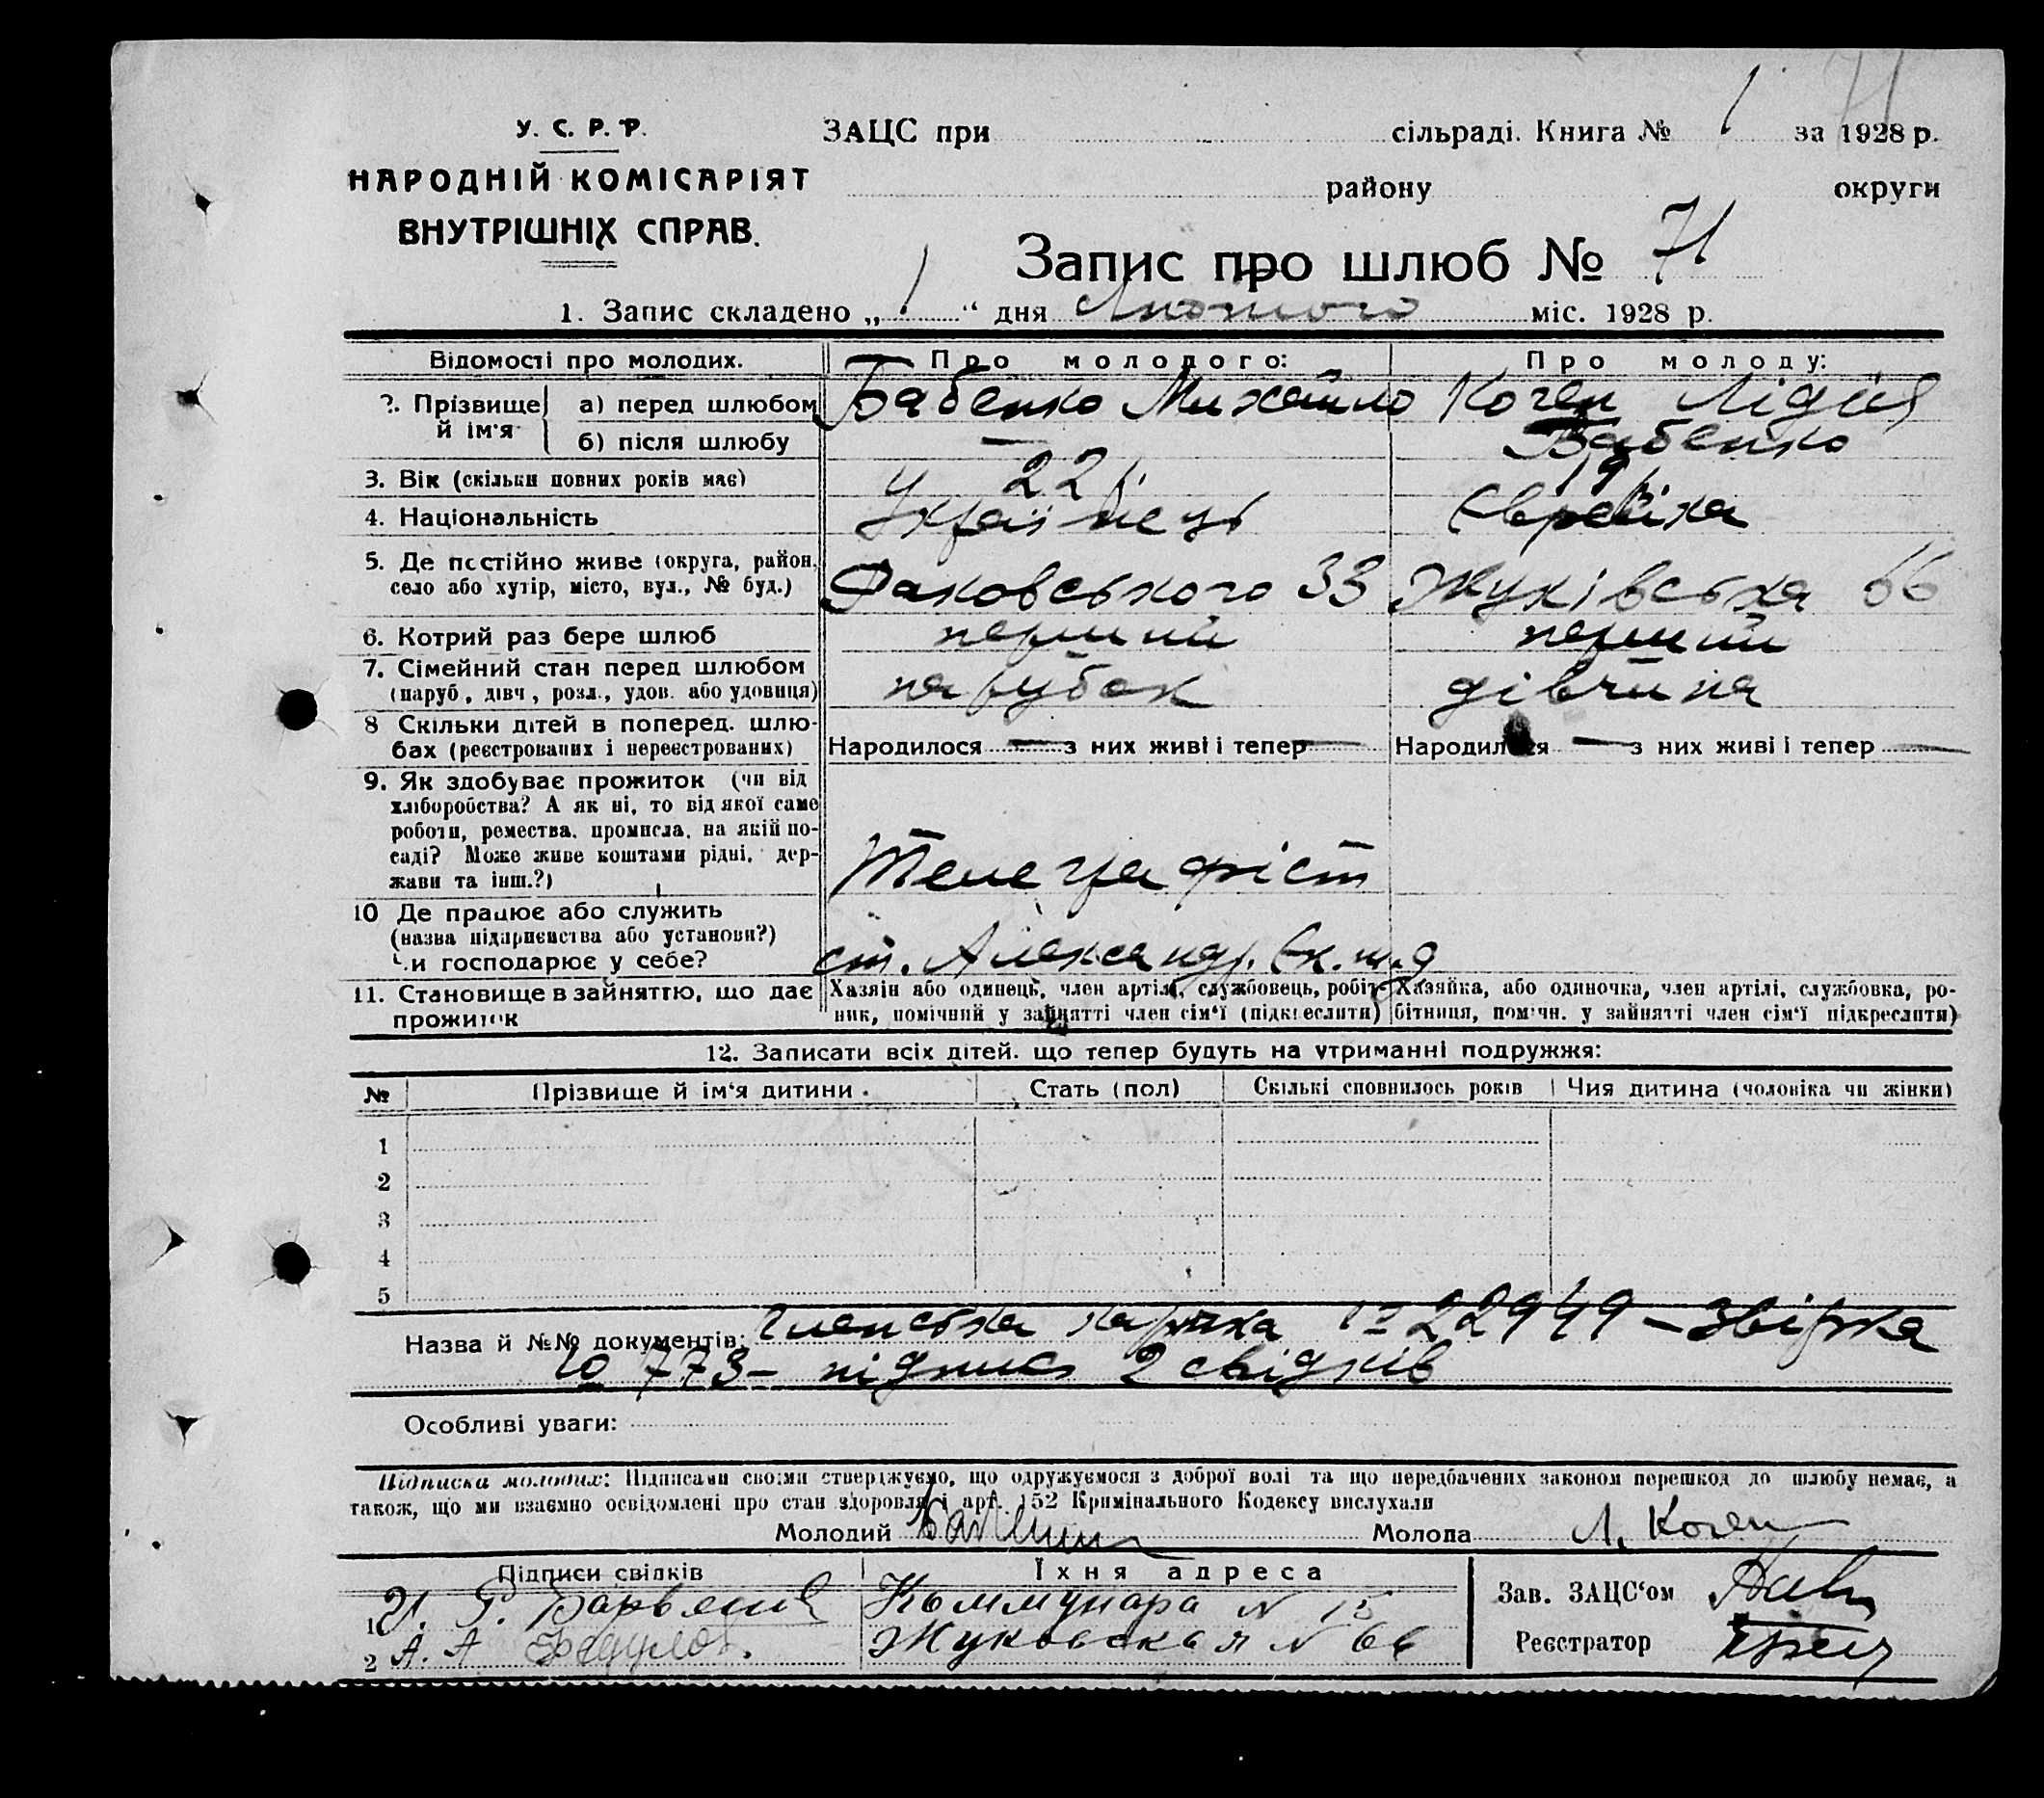 71
У. С. Р. Р.
НАРОДНІЙ КОМІСАРІЯТ
ВНУТРІШНІХ СПРАВ.
ЗАЦС при сільраді. Книга № 1 за 1928 р.
району округи
Запис про шлюб № 71
1. Запис складено „ 1 “ дня Лютого міс. 1928 р.
Відомості про молодих. Про молодого: Про молоду:
2. Прізвище й ім'я а) перед шлюбом Бабенко Михайло Коген Лідія
б) після шлюбу — Бабенко
3. Вік (скільки повних років має) 22 р. 19 р.
4. Національність Українець Єврейка
5. Де постійно живе (округа, район, село або хутір, місто, вул., № буд.) Раковського 33 Жуківська 66
6. Котрий раз бере шлюб перший перший
7. Сімейний стан перед шлюбом (паруб., дівч., розл., удов. або удовиця) парубок дівчина
8 Скільки дітей в поперед. шлюбах (реєстрованих і нереєстрованих) Народилося — з них живі і тепер — Народилося — з них живі і тепер —
9. Як здобуває прожиток (чи від хліборобства? А як ні, то від якої саме роботи, ремества, промисла, на якій посаді? Може живе коштами рідні, держави та інш.?) Телеграфіст
10 Де працює або служить (назва підприємства або установи?) Чи господарює у себе? ст. Александр. Ек. ж.д
11. Становище в зайняттю, що дає прожиток
Хазяїн або одинець, член артілі, службовець, робітник, помічний у зайнятті член сім'ї (підкреслити)
Хазяйка, або одиночка, член артілі, службовка, робітниця, помічн. у зайнятті член сім'ї підкреслити)
12. Записати всіх дітей, що тепер будуть на утриманні подружжя:
№ Прізвище й ім'я дитини. Стать (пол) Скількі сповнилось років Чия дитина (чоловіка чи жінки)
1
2
3
4
5
Назва й №№ документів: Членська картка № 22949 — Звірка
10 773 — підпис 2 свідків
Особливі уваги:
Підписка молодих: Підписами своїми стверджуємо, що одружуємося з доброї волі та що передбачених законом перешкод до шлюбу немає, а
також, що ми взаємно освідомлені про стан здоровля і арт. 152 Кримінального Кодексу вислухали
Молодий Молода Л. Коген
Підписи свідків Їхня адреса
1 Коммунара N 15
2 А. А Жуковская N 66
Зав. ЗАЦС'ом
Реєстратор